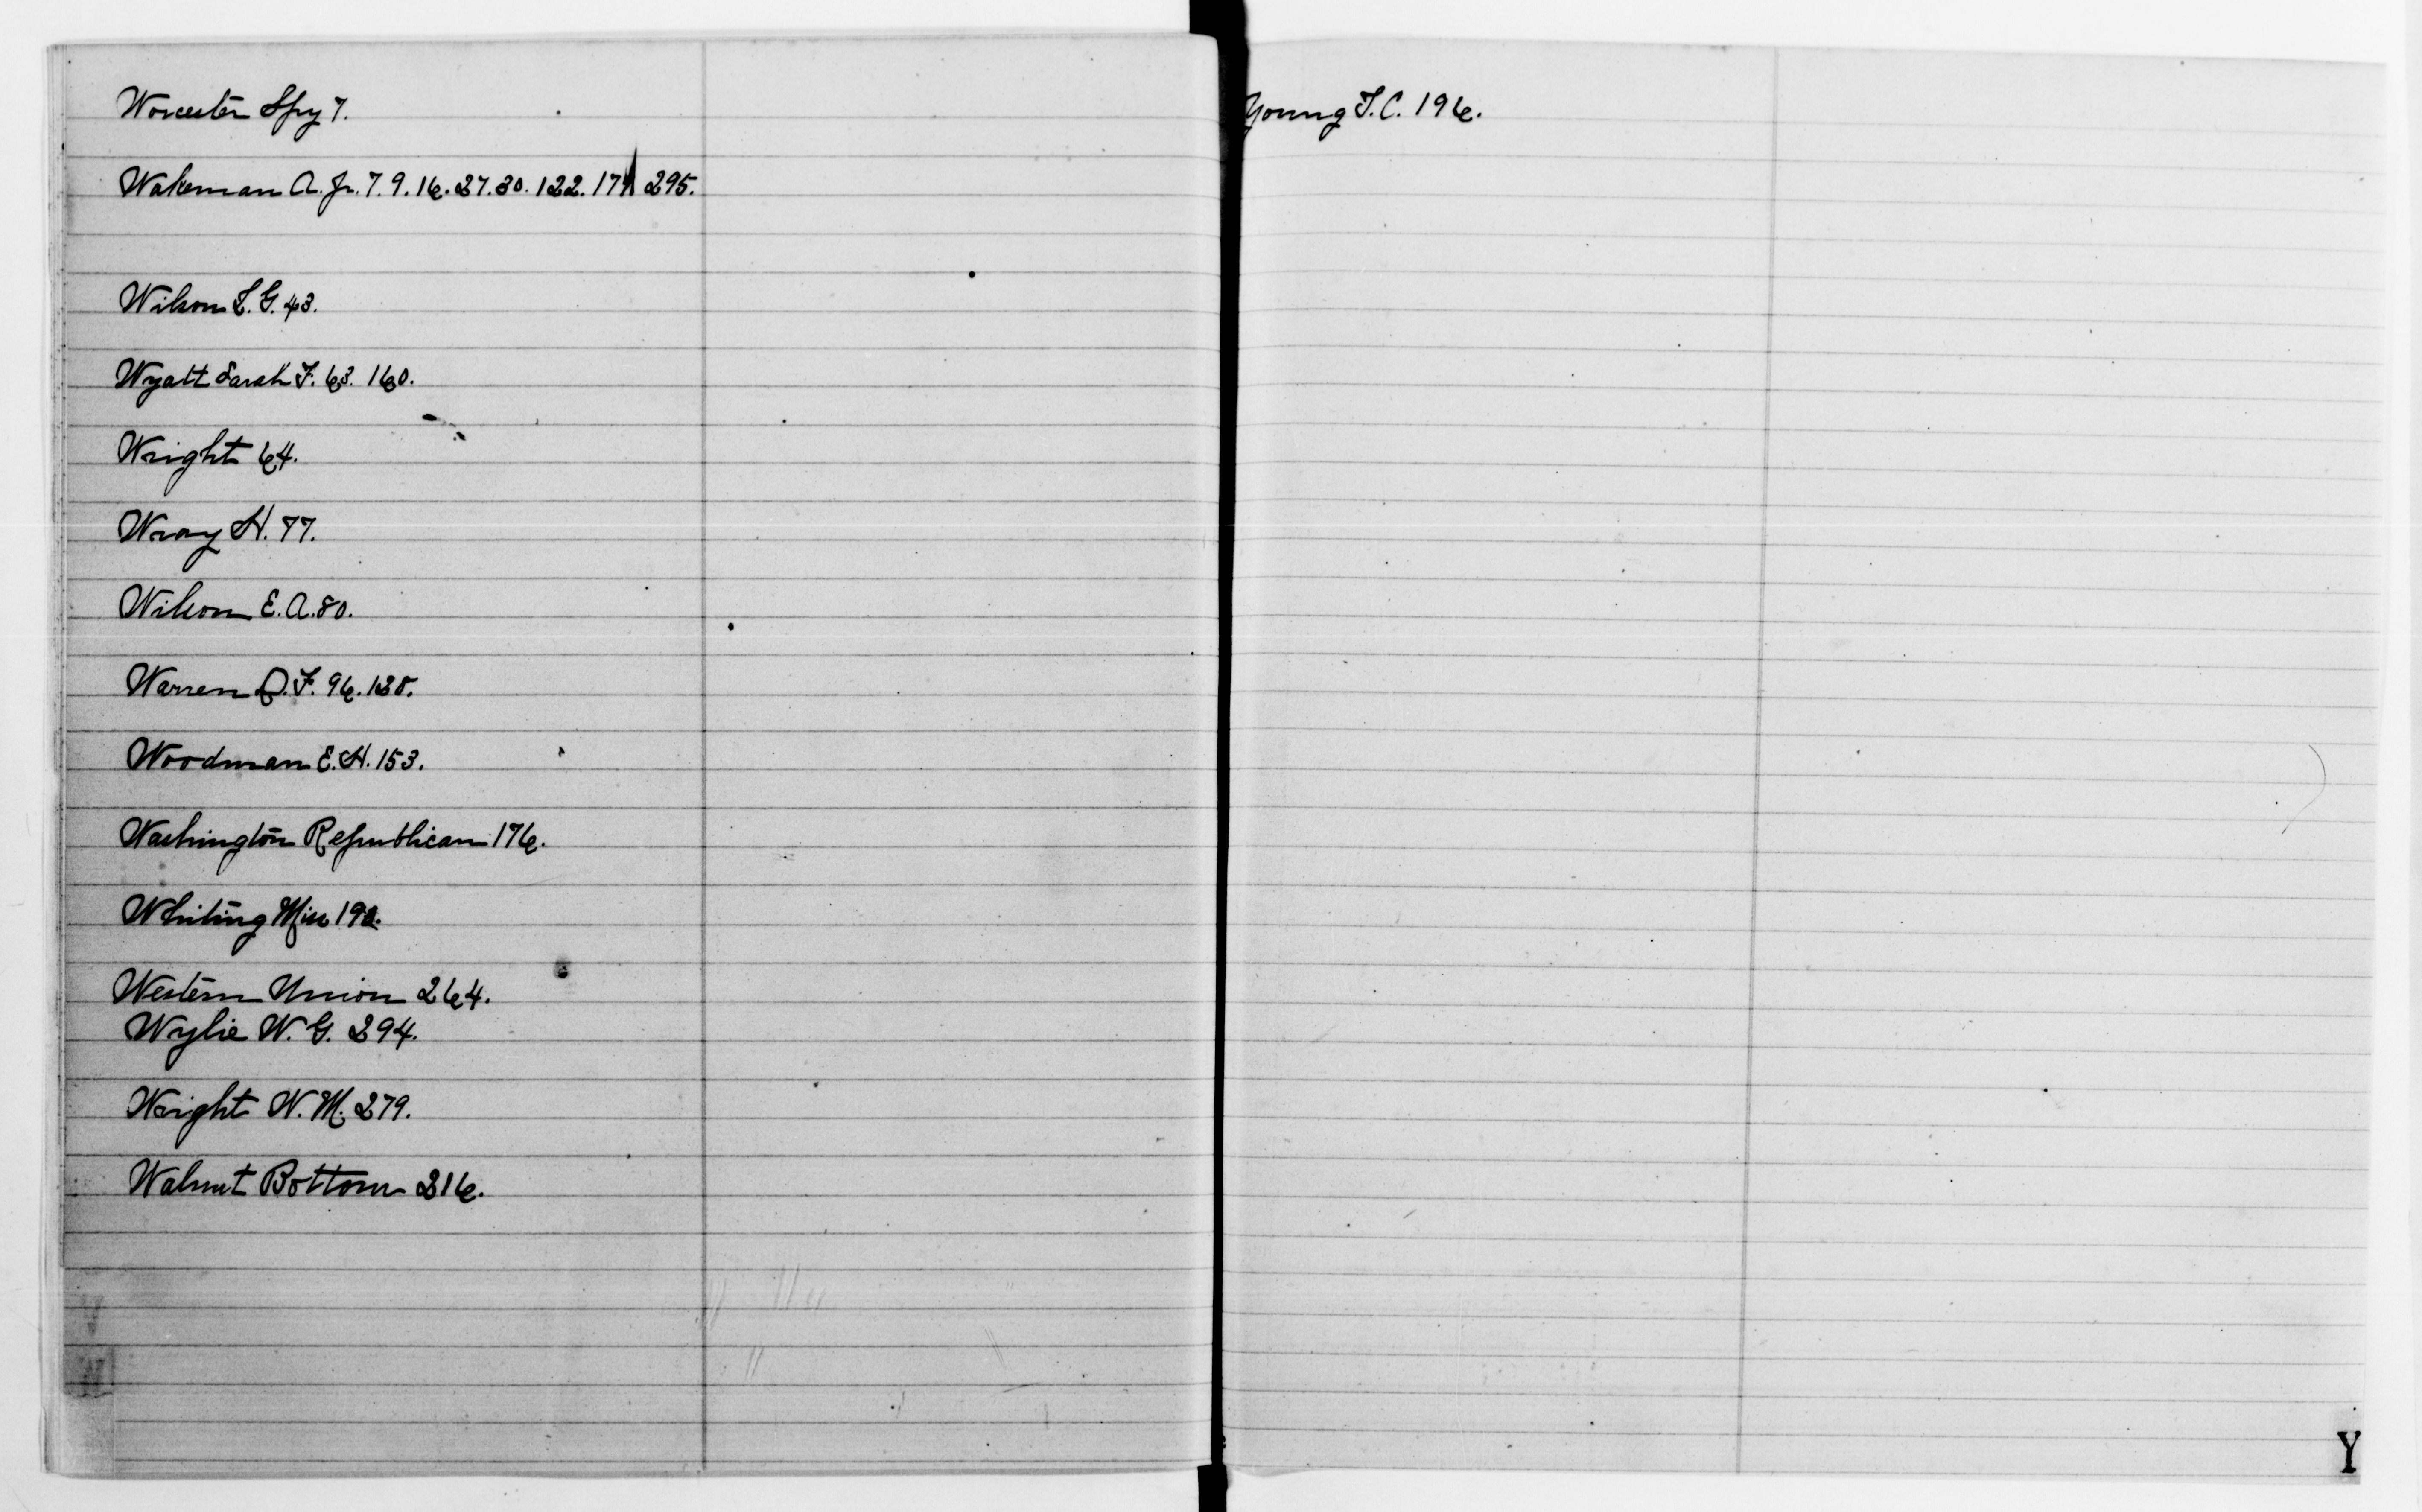 Worcester Spy 7.
Wakeman A. Jr. 7. 9. 16. 27. 30. 122. 295.
Wilson L. G. 43.
Wyatt Sarah F. 63. 160.
Wright 64.
Wray H. 77.
Wilson E. A. 80.
Warren F. 96. 138.
Woodman E. H. 153.
Washington Republican 176.
Whiting Miss
Western Union 264.
Wylie W. G. 294.
Wright W. M. 279.
Walnut Bottom 216.
Young T. C. 196.
Y